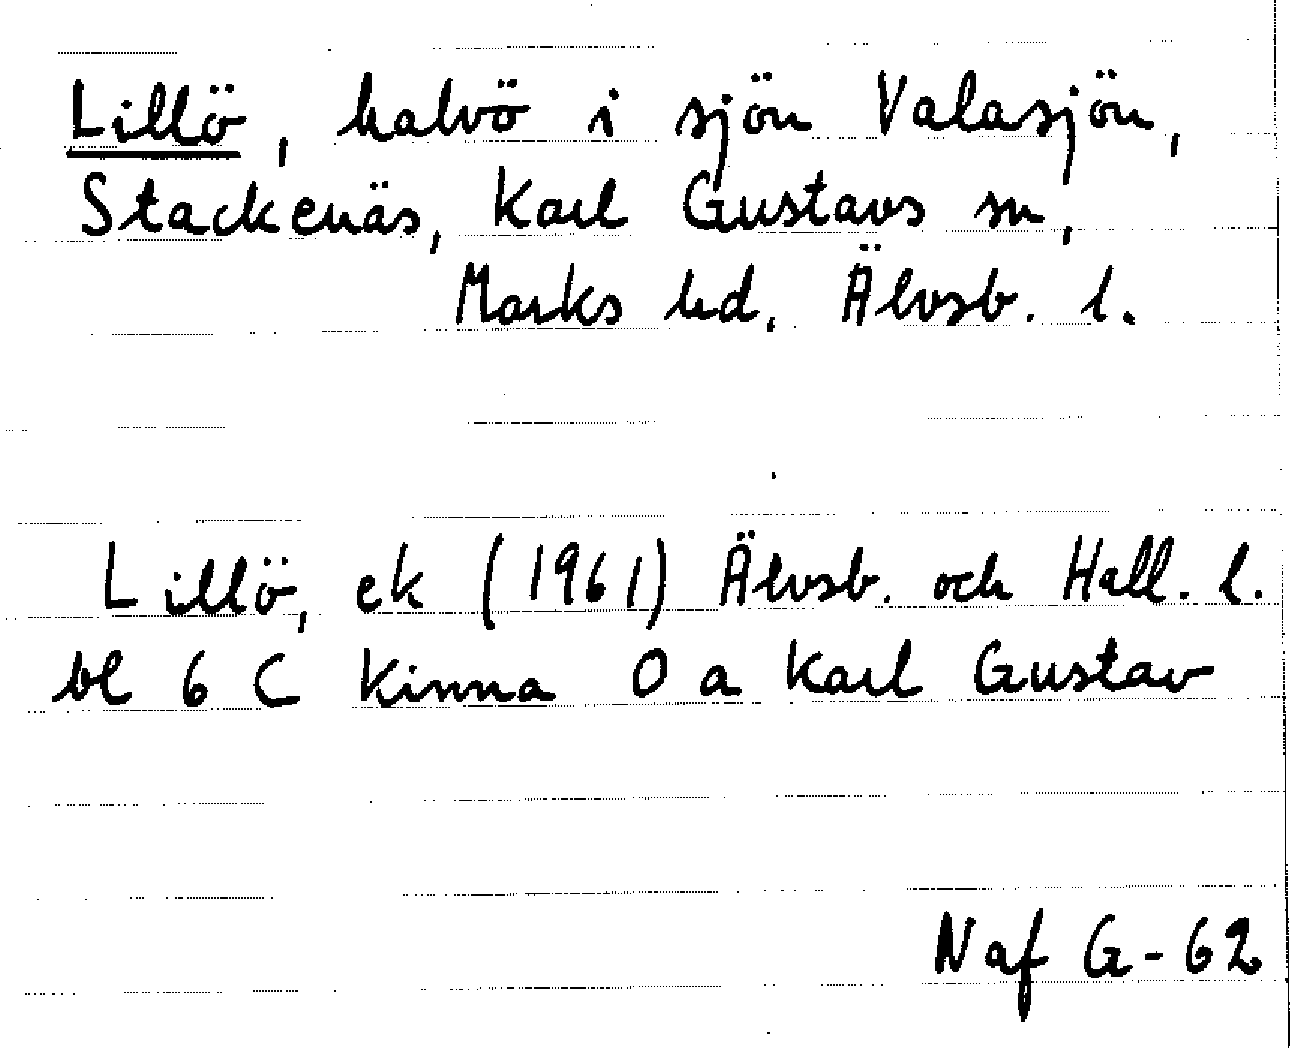 Lillö, halvö i sjön Valasjön,
Stackenäs, Karl Gustavs sn,
Marks hd, Älvsb. l.
Lillö, ek (1961) Älvsb. och Hall. l.
bl 6 C Kinna 0 a Karl Gustav
Naf G-62